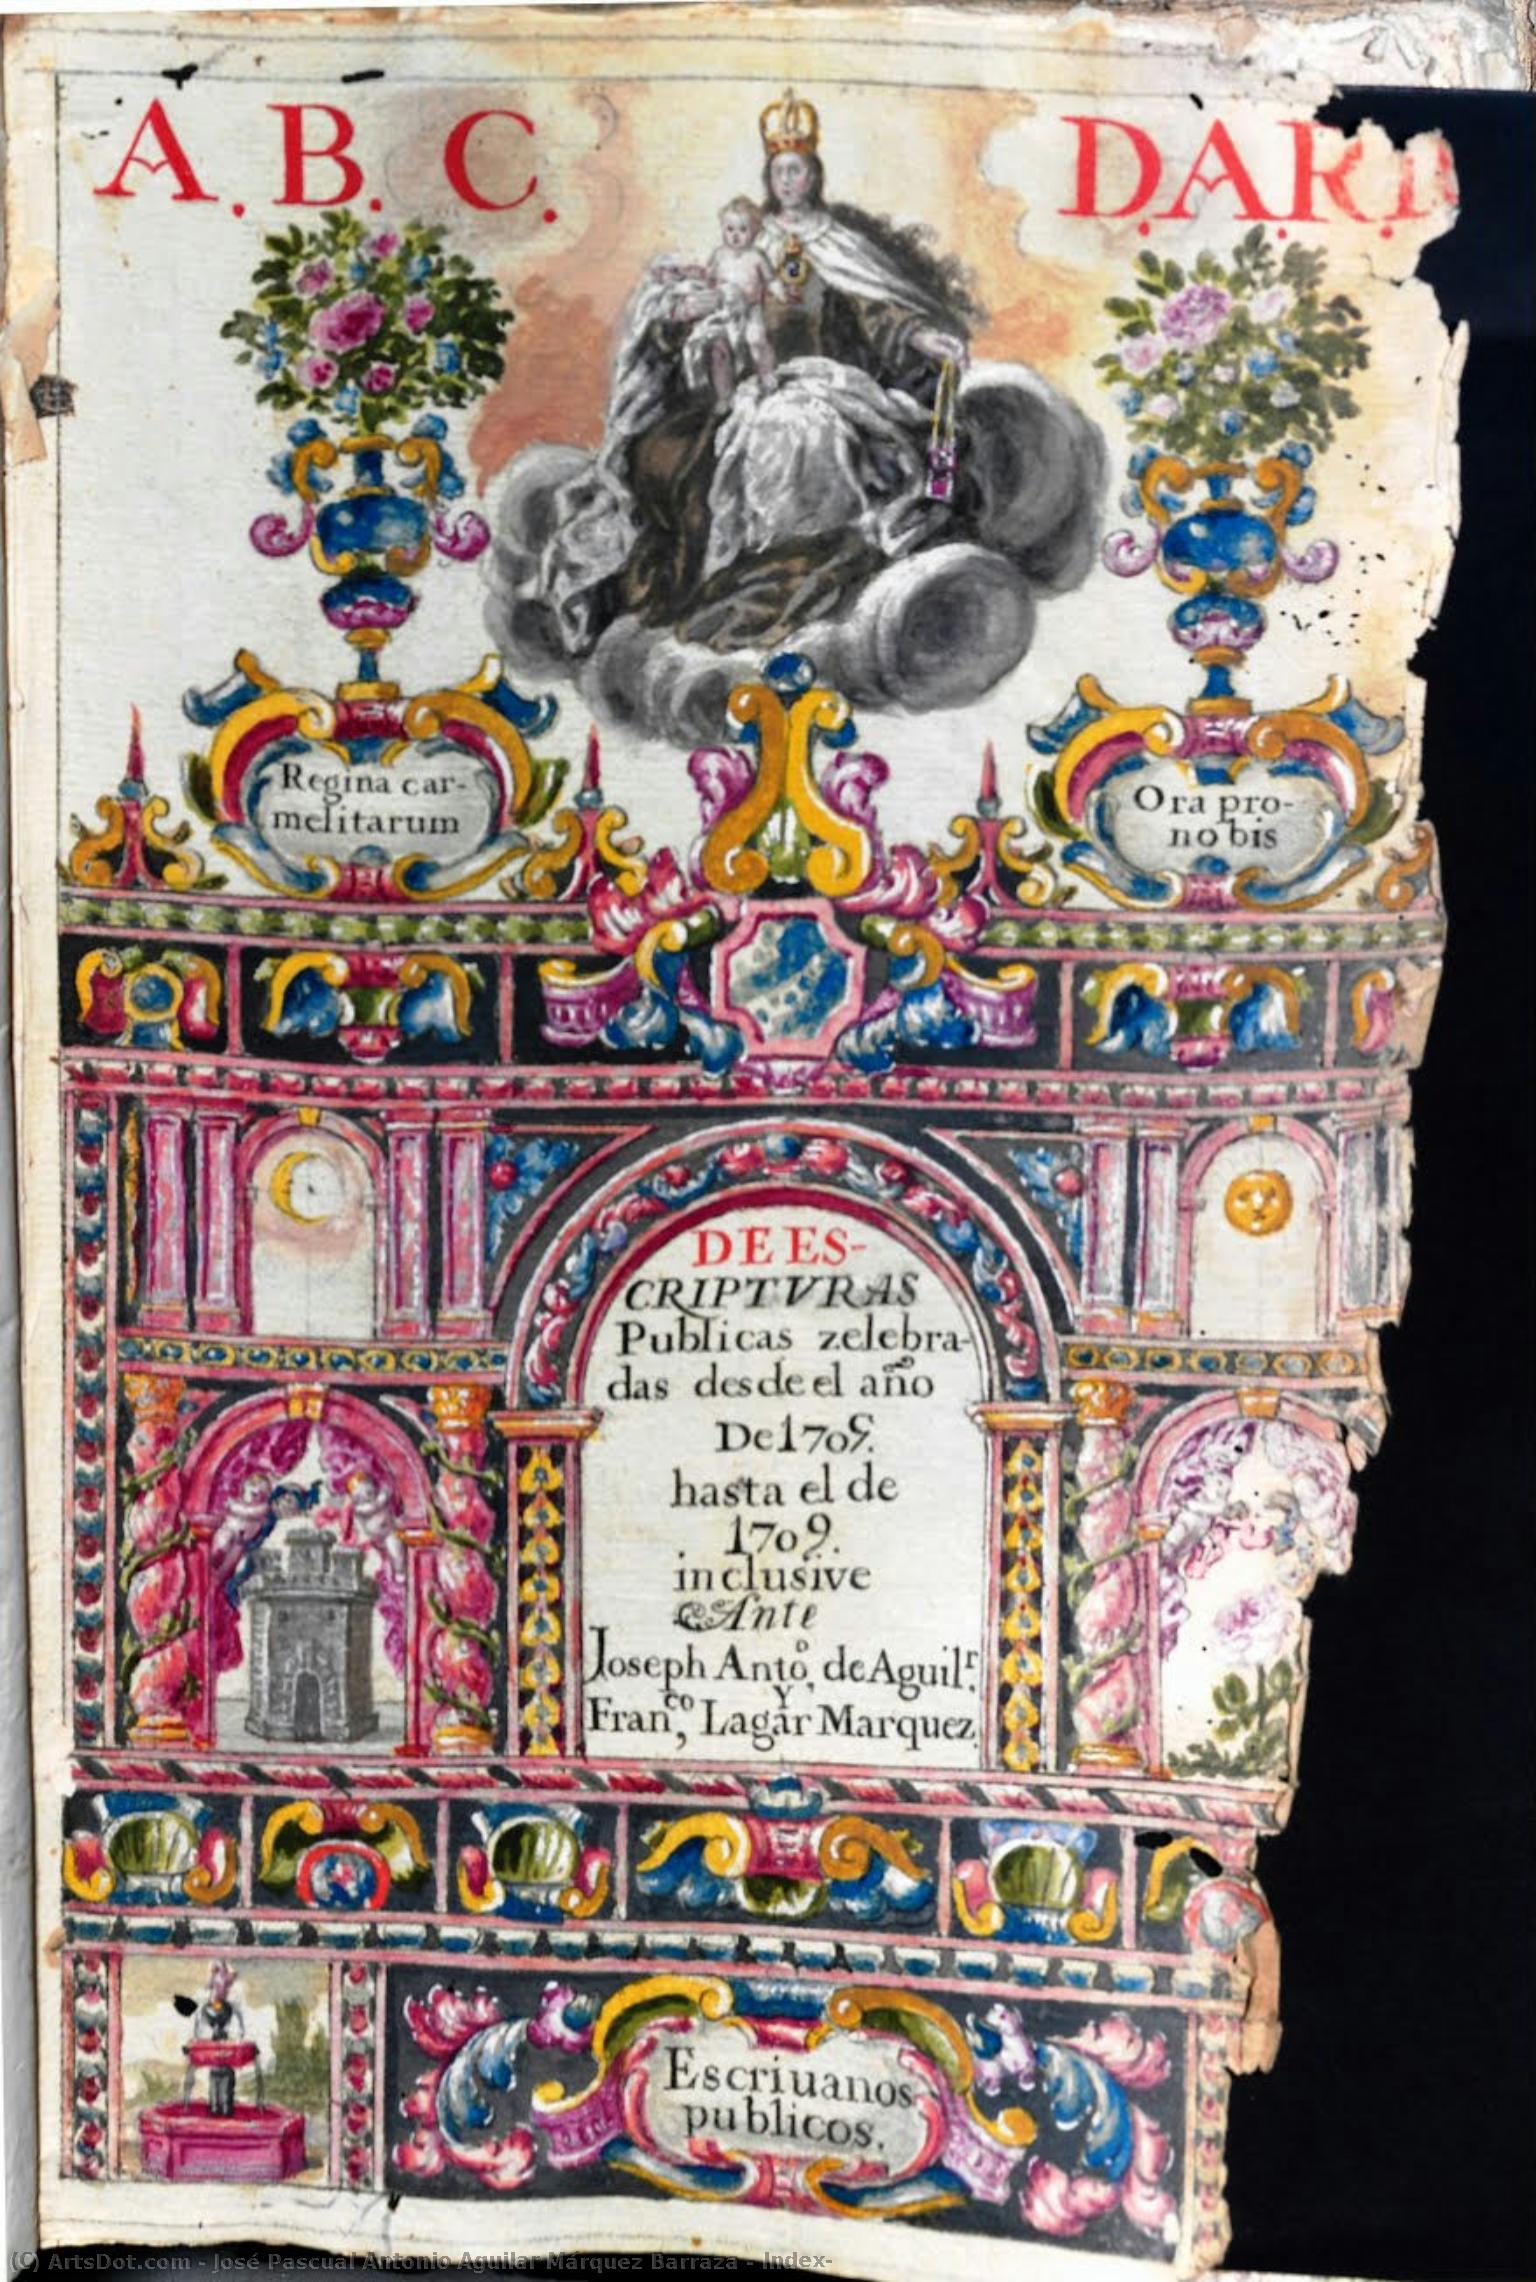 A. B. C. D.A.R.
Regina car-
melitarum
Ora pro-
no bis
DE ES-
CRIPTVRAS
Publicas zelebra-
das desde el año
De 1705.
hasta el de
1709.
inclusive
Ante
Joseph Anto, de Aguilr.
Y
Franco, Lagar Marquez.
Escriuanos
publicos.
(C) ArtsDot.com - José Pascual Antonio Aguilar Márquez Barraza - Index-